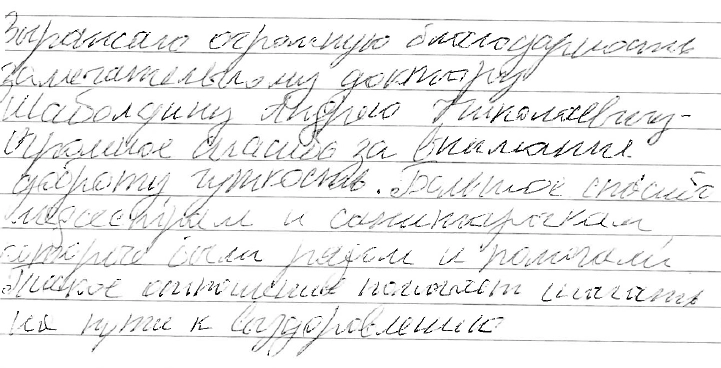 Выражаю огромную благодарность
замечательному доктору
Шаболдину Андрею Николаевичу-
огромное спасибо за внимание
доброту чуткость. Большое спасибо
медсестрам и санитарочкам
которые были рядом и помогали
Такое отношение помогает шагать
на пути к выздоровлению